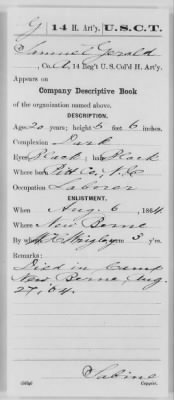 G | 14 H. Art'y. | U.S.C.T.
Samuel Gerald
, Co. A, 14 Reg't U. S. Col'd H. Art'y.
Appears on
Company Descriptive Book
of the organization named above.
DESCRIPTION.
Age 20 years; height 5 feet 6 inches.
Complexion Dark
Eyes Black; hair Black
Where born Co., N.C
Occupation Laborer
ENLISTMENT.
When Aug. 6, 1864.
Where New Berne
By whom term 3 y'rs.
Remarks:
Died in Camp
New Berne, Aug.
27, 64.
Sabine
Copyist.